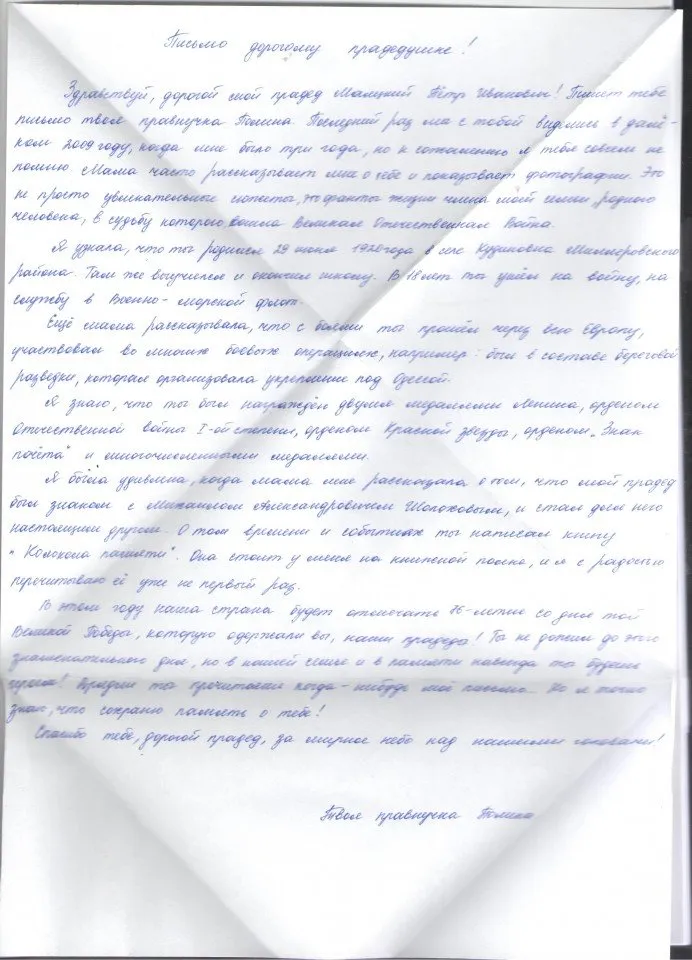 Письмо дорогому прадедушке!
Здравствуй, дорогой мой прадед Малицкий Пётр Иванович! Пишет тебе
письмо твоя правнучка Полина. Последний раз мы с тобой виделись в далё-
ком 2009 году, когда мне было три года, но к сожалению я тебя совсем не
помню. Мама часто рассказывает мне о тебе и показывает фотографии. Это
не просто увлекательные сюжеты, это факты жизни члена моей семьи, родного
человека, в судьбу которого вошла Великая Отечественная Война.
Я узнала, что ты родился 29 июня 1926 года в селе Кудиновка Миллеровского
района. Там же выучился и окончил школу. В 18 лет ты ушёл на войну, на
службу в Военно-морской флот.
Ещё мама рассказывала, что с боями ты прошёл через всю Европу,
участвовал во многих боевых операциях, например: был в составе береговой
разведки, которая организовала укрепление под Одессой.
Я знаю, что ты был награждён двумя медалями Ленина, орденом
Отечественной войны I-ой степени, орденом Красной звезды, орденом „Знак
почёта" и многочисленными медалями.
Я была удивлена, когда мама мне рассказала о том, что мой прадед
был знаком с Михаилом Александровичем Шолоховым, и стал для него
настоящим другом. О том времени и событиях ты написал книгу
"Колокола памяти". Она стоит у меня на книжной полке, и я с радостью
перечитываю её уже не первый раз.
В этом году наша страна будет отмечать 76-летие со дня той
Великой Победы, которую одержали вы, наши прадеды! Ты не дожил до этого
знаменательного дня, но в нашей семье и в памяти навсегда ты будешь
героем! Врядли ты прочитаешь когда-нибудь моё письмо... Но я точно
знаю, что сохраню память о тебе!
Спасибо тебе, дорогой прадед, за мирное небо над нашими головами!
Твоя правнучка Полина